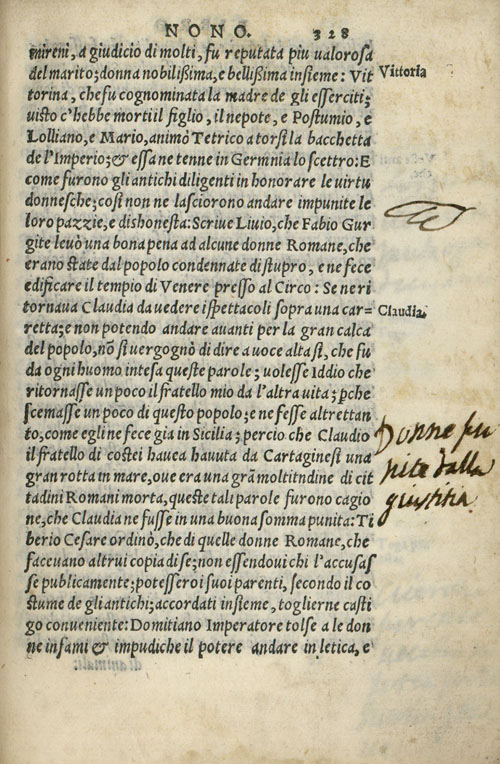 NONO. 328
mireni, a giudicio di molti, fu reputata piu valorosa
del marito; donna nobilißima, e bellißima insieme: Vit
torina, che fu cognominata la madre de gli esserciti;
uisto c'hebbe morti il figlio, il nepote, e Postumio, e
Lolliano, e Mario, animò Tetrico a torsi la bacchetta
de l'Imperio; & essa ne tenne in Germnia lo scettro: E
come furono gli antichi diligenti in honorare le uirtu
donnesche; cosi non ne lasciorono andare impunite le
loro pazzie, e dishonesta: Scriue Liuio, che Fabio Gur
gite leuò una bona pena ad alcune donne Romane, che
erano state dal popolo condennate di stupro, e ne fece
edificare il tempio di Venere presso al Circo: Se ne ri
tornaua Claudia da uedere i spettacoli sopra una car=
retta; e non potendo andare auanti per la gran calca
del popolo, nõ si uergognò di dire a uoce alta sì, che fu
da ogni huomo intesa queste parole; uolesse Iddio che
ritornasse un poco il fratello mio da l'altra uita; pche
scemasse un poco di questo popolo; e ne fesse altrettan
to, come egli ne fece gia in Sicilia; percio che Claudio
il fratello di costei hauea hauuta da Cartaginesi una
gran rotta in mare, oue era una grã moltitndine di cit
tadini Romani morta, queste tali parole furono cagio
ne, che Claudia ne fusse in una buona somma punita: Ti
berio Cesare ordinò, che di quelle donne Romane, che
faceuano altrui copia di se; non essendoui chi l'accusas
se publicamente; potessero i suoi parenti, secondo il co
stume de gli antichi; accordati insieme, toglierne casti
go conueniente: Domitiano Imperatore tolse a le don
ne infami & impudiche il potere andare in letica, e
Vittoria
Claudia.
Donne pu
nite dalla
giustitia